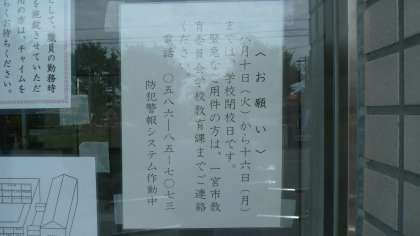 〈お願い〉
八月十日(火)から十六日(月)
までは、学校閉校日です。
緊急なご用件の方は、一宮市教
育委員会学校教育課までご連絡
ください。
電話 〇五八六ー八五ー七〇七三
防犯警報システム作動中
して、職員の勤務時
を施錠させていただ
用の方は、チャイムを
お待ちください。